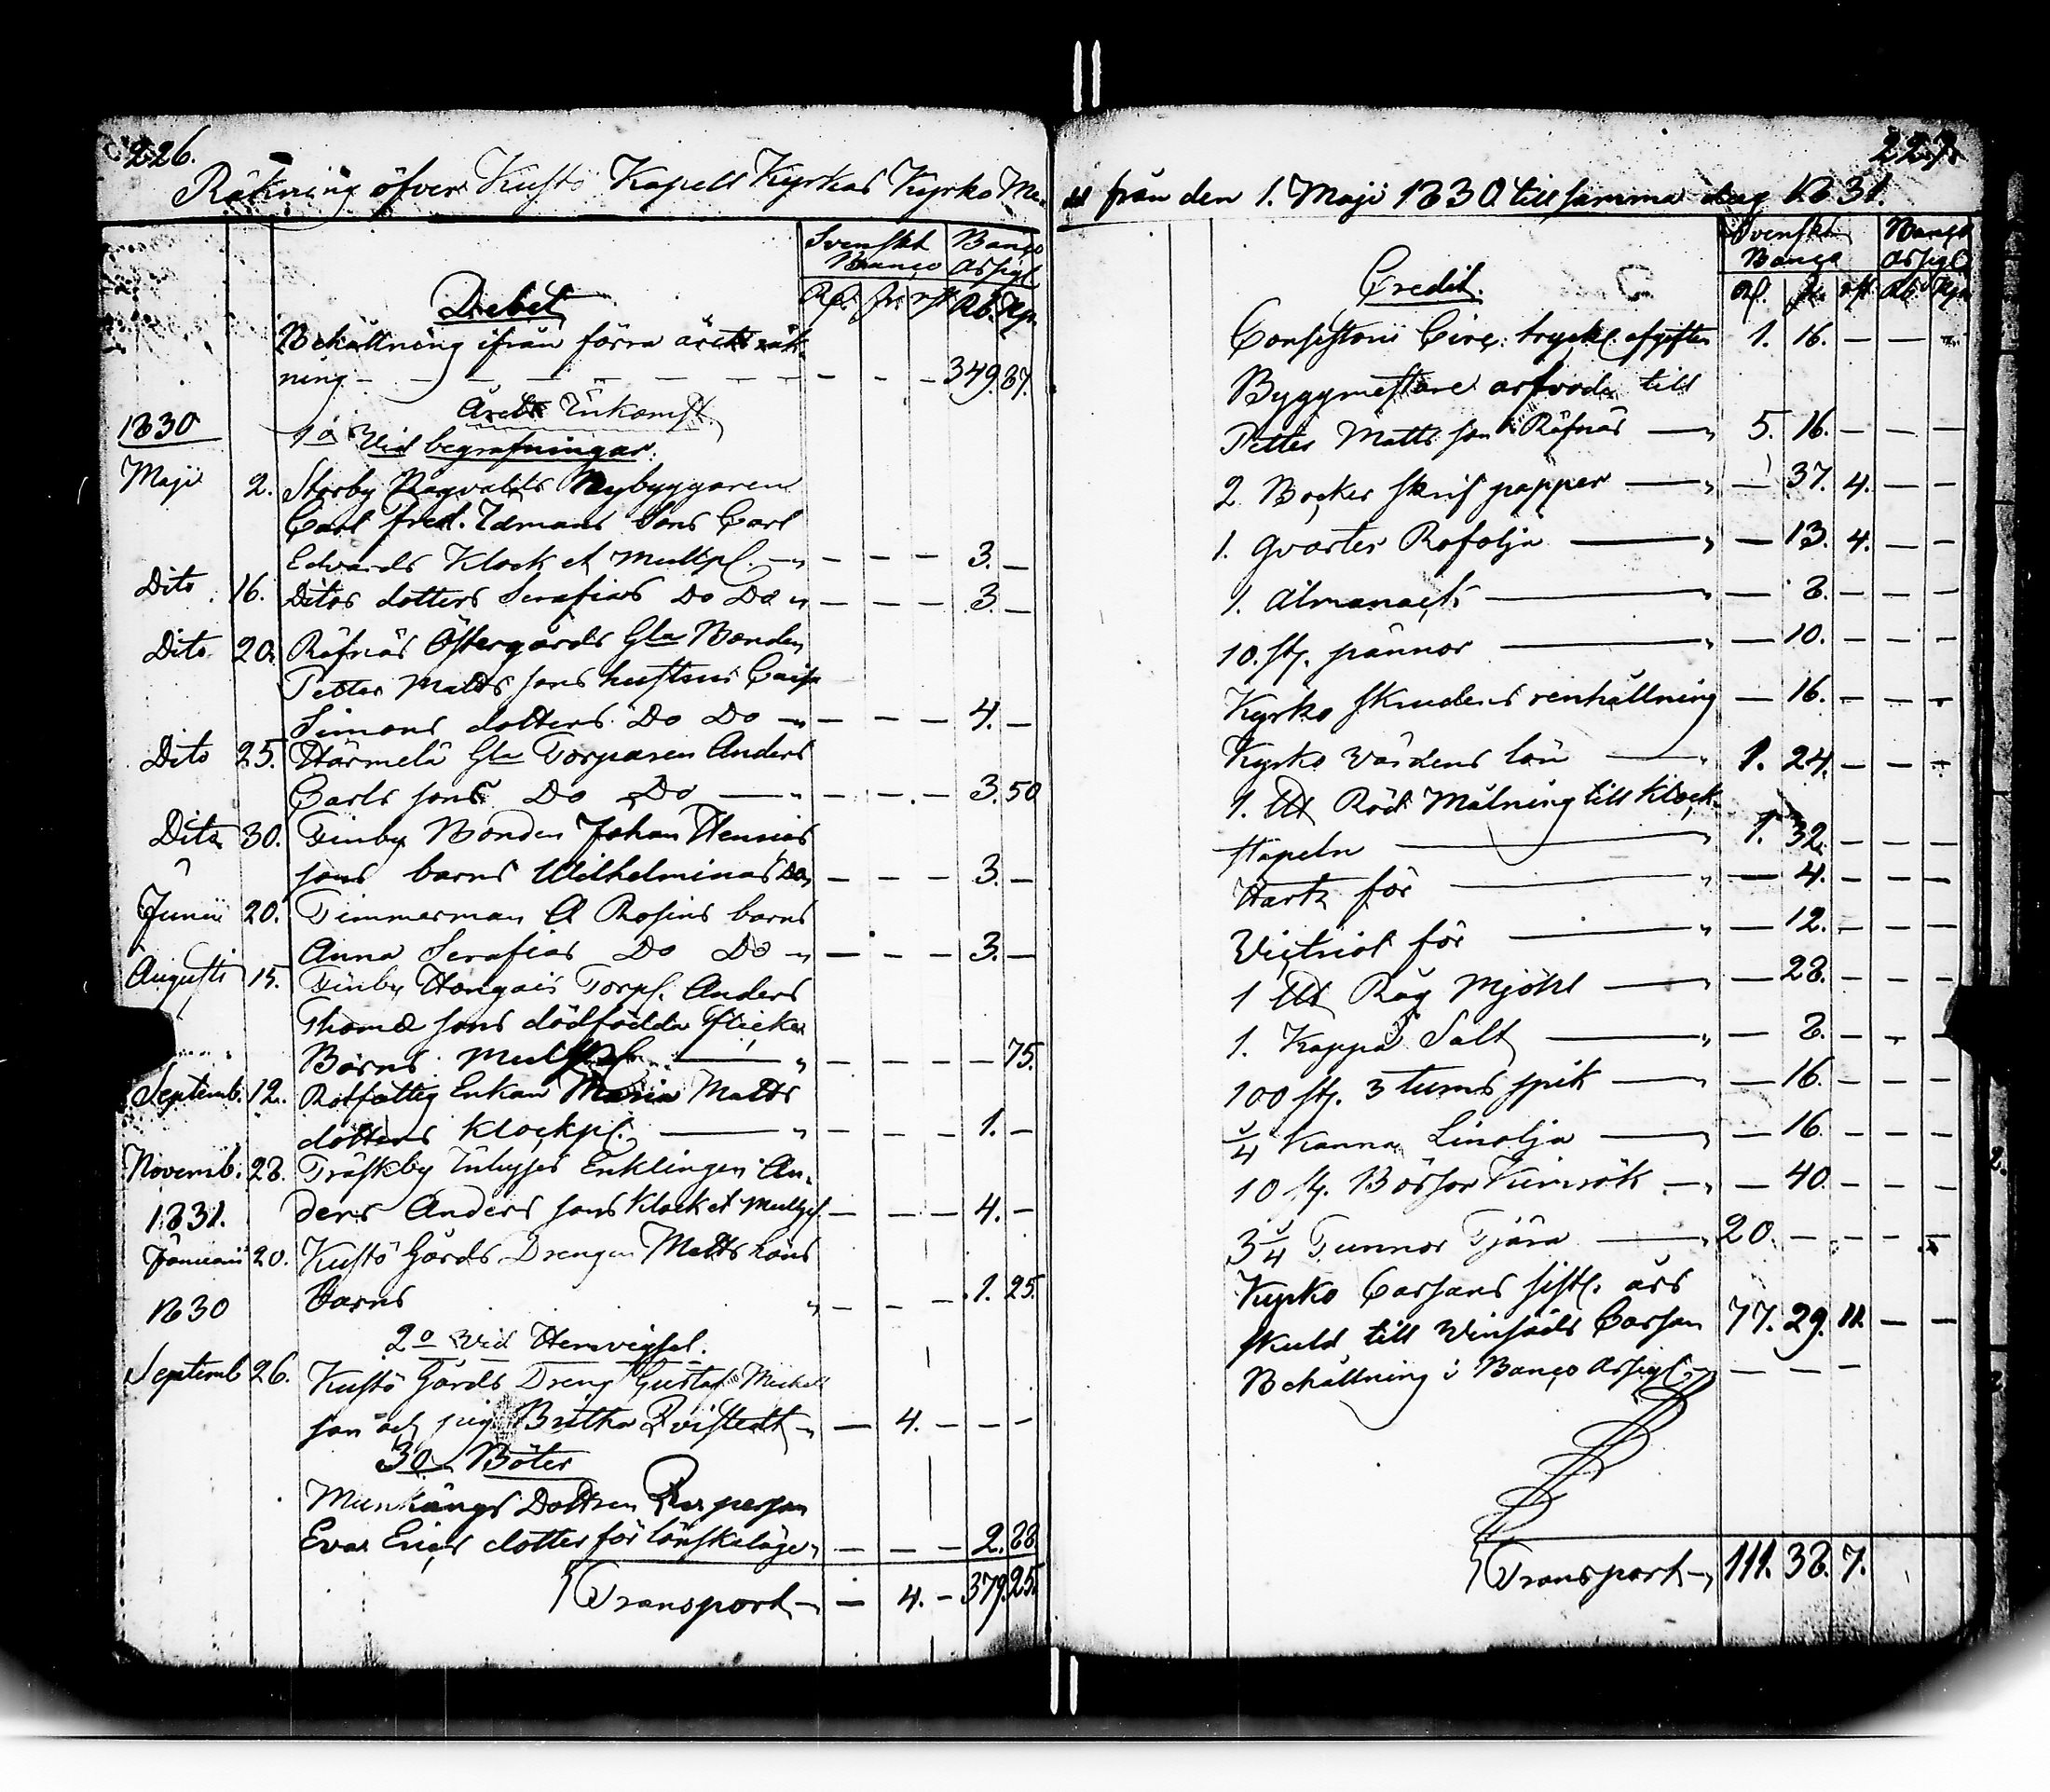 226.
Räkning öfver Kustö Kapell Kyrkas Kyrko Me-
Svenskt Banco
Banco Assigt
Rd. sk. rst. Rb. Kp.
Debet
Behållning ifrån förra årets räk-
ning - - - - - - - 349. 87.
Årets Inkomst
1830
1o Vid begrafningar.
Maji 2. Storby Ragvalds Nybyggaren
Carl Fred. Idmans Sons Carl
Edvards Klock et Mullpl. - - - 3. -
Dito 16. Ditos dotters Serafias Do Do - - - 3. -
Dito 20. Räfnäs Östergårds Gla Bonden
Petter Matts sons hustrus Caisa
Simons dotters Do Do - - - 4. -
Dito 25. Härmelä Gla Torparen Anders
Carls sons Do Do - - - 3. 50
Dito 30. Finby Bonden Johan Henrics
sons barns Wilhelminas Do - - - 3. -
Junii 20. Timmerman A Rosins barns
Anna Serafias Do Do - - - 3. -
Augusti 15. Finby Hongais Torp. Anders
Thomæ sons dödfödda flicke
Barns Mullpl. - - - - 75.
Septemb. 12. Rotfattig Enkan Maria Matts
dotters Klockpl. - - - 1. -
Novemb. 28. Träskby Inhyses Enklingen An-
1831. ders Anders sons Klock et Mullpl. - - - 4. -
Januarii 20. Kustö Gårds Drengen Matts sons
1830 Barns - - - 1. 25.
2o Vid Hemvigsel.
Septemb 26. Kustö Gårds Dreng Gustaf Michels
son och pig. Britha Qvistedt - 4. - - -
3o Böter
Munkängs Dottren Qv. person
Eva Erics dotter för lönskeläge - - - 2. 88
Transport - 4. - 379. 25.
227.
del från den 1. Maji 1830 till samma dag 1831.
Svenskt Banco
Banco Assigt
Rd. sk. rst. Rb. Kp.
Credit.
Consistorii Circ: tryckl. afgifter 1. 16. - - -
Byggmestare arfvode till
Petter Matts son Räfnäs 5. 16. - - -
2 Böcker skrif papper - 37. 4. - -
1. qvarter Rofolja - 13. 4. - -
1. Almanach - 8. - - -
10. st. pännor - 10. - - -
Kyrko skrudens renhållning - 16. - - -
Kyrko Värdens lön 1. 24. - - -
1. Röd Målning till Klock-
stapeln 1. 32. - - -
Hartz för - 4. - - -
Victriol för - 12. - - -
1 Råg Mjöhl - 28. - - -
1. Kappa Salt - 8. - - -
100 st. 3 tums spik - 16. - - -
1/4 Kanna Linolja - 16. - - -
10 st. Börsor Kimrök - 40. - - -
3 1/4 Tunnor Tjära 20. - - - -
Kyrko Cassans sistl. års
skuld till Vinsäds Cassan 77. 29. 11. - -
Behållning i Banco Assigt. - - -
Transport 111. 38. 7.